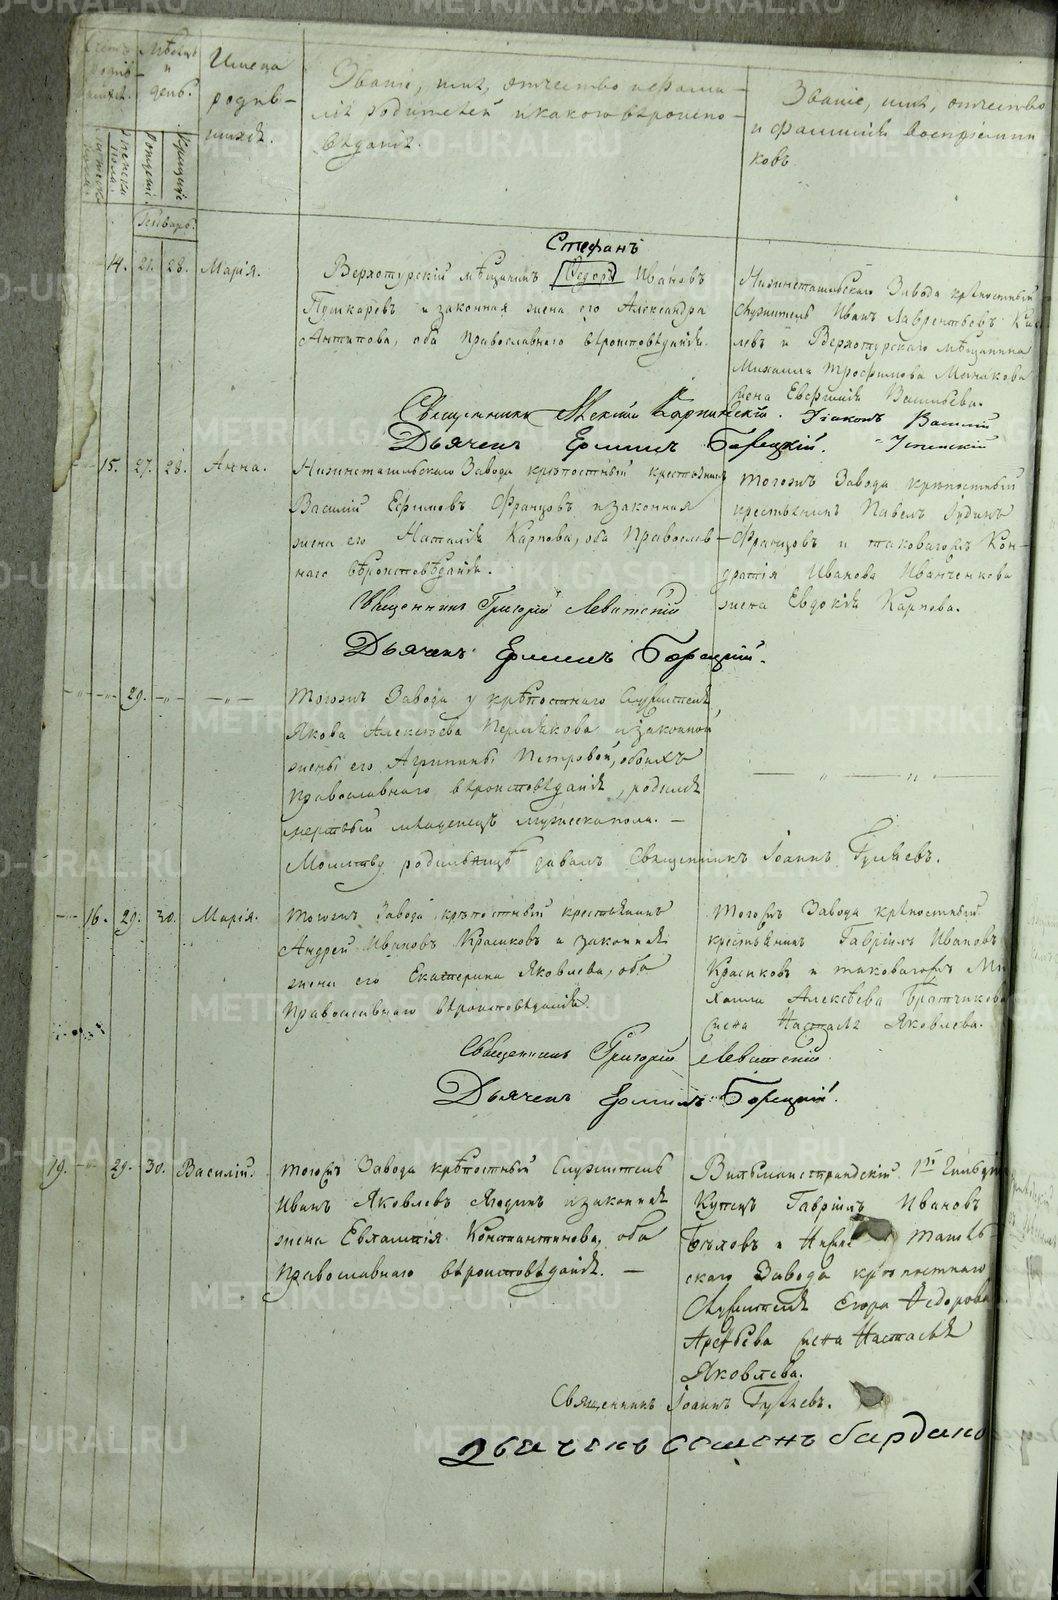 Мѣсяцъ
и
день.
Рожденіе.
Крещеніе
женска
пола.
Имена
родив-
шихся.
Званіе, имя, отчество и фами-
лія родителей и какого вѣроиспо-
вѣданія.
Званіе, имя, отчество
и фамилія воспріемни
ковъ
Январь.
14. 21. 28. Марія.
Стефанъ
Верхотурскій мѣщанинъ Ѳедоръ Ивановъ
Пушкаревъ и законная жена его Александра
Антипова, оба православнаго вѣроисповѣданія.
Нижнетагильскаго Завода крѣпостный
служитель Иванъ Лаврентьевъ
левъ и Верхотурскаго мѣщанина
Михаила Трофимова Минакова
жена Евфимія Васильева.
Священникъ Алексій Карпинскій. Діаконъ Василій
Дьячекъ Ермилъ Борецкій. Успенскій
15. 27. 28. Анна.
Нижнетагильскаго Завода крѣпостный крестьянинъ
Василій Ефимовъ Французовъ и законная
жена его Наталія Карпова, оба Православ-
наго вѣроисповѣданія.
тогожъ Завода крѣпостный
крестьянинъ Павелъ Іудинъ
Французовъ и таковагожъ Кон-
дратія Иванова Иванченкова
жена Евдокія Карпова.
Священникъ Григорій Левитскій
Дьячекъ Ермилъ Борецкій.
— „ — „ — 29. — „ — — „ —
тогожъ Завода у крѣпостнаго служителя
Якова Алексѣева Пермякова и законной
жены его Агрипины Петровой, обоихъ
православнаго вѣроисповѣданія, родился
мертвый младенецъ мужеска пола. —
— „ — „ —
Молитву родильницѣ давалъ Священникъ Іоаннъ Гуляевъ.
— 16. 29. 30. Марія.
тогожъ Завода крѣпостный крестьянинъ
Андрей Ивановъ Красиковъ и законная
жена его Екатерина Яковлева, оба
православнаго вѣроисповѣданія
тогожъ Завода крѣпостный
крестьянинъ Гавріилъ Ивановъ
Красиковъ и таковагожъ Ми
хаила Алексѣева Братчикова
жена Настасья Яковлева.
Священникъ Григорій Левитскій
Дьячекъ Ермилъ Борецкій.
19. — „ — 29. 30. Василій.
тогожъ Завода крѣпостный служитель
Иванъ Яковлевъ и законная
жена Евлампія Константинова, оба
православнаго вѣроисповѣданія. —
Вильманстрандскій 1й Гильдіи
Купецъ Гавріилъ Ивановъ
Бѣловъ и Нижне тагиль-
скаго Завода крѣпостнаго
служителя Егора Ѳедорова
Арефьева жена Настасья
Яковлева.
Священникъ Іоаннъ Гуляевъ.
дьячекъ семенъ бардако
METRIKI.GASO-URAL.RU